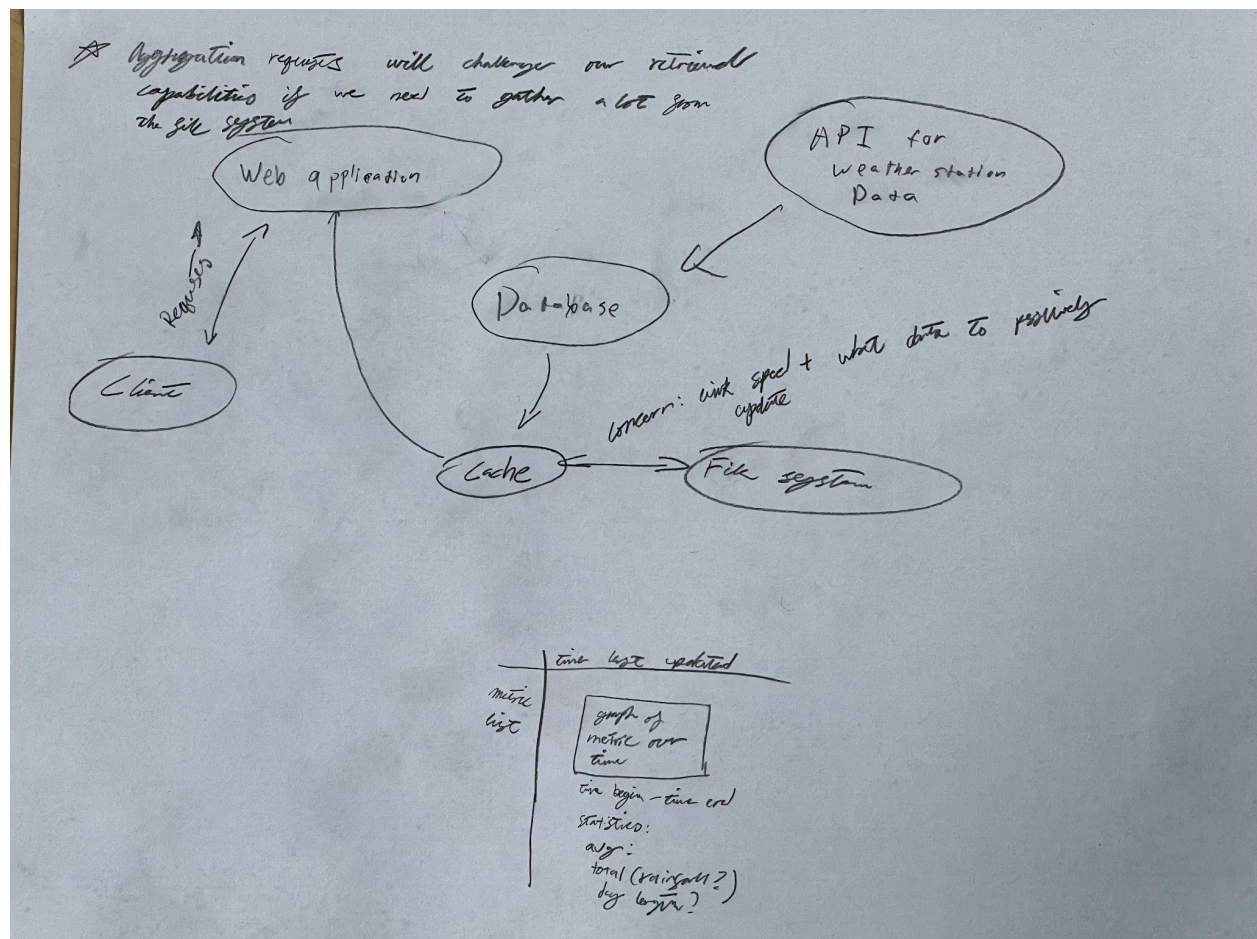 ☆ Aggregation requests will challenge our retrieval
capabilities if we need to gather a lot from
the file system
Web application
API for
weather station
Data
Requests →
Database
Client
concern: link speed + what data to
update
Cache
File system
time last updated
metric
list
graph of
metric over
time
time begin - time end
statistics:
avg:
total (rainfall?)
day length?